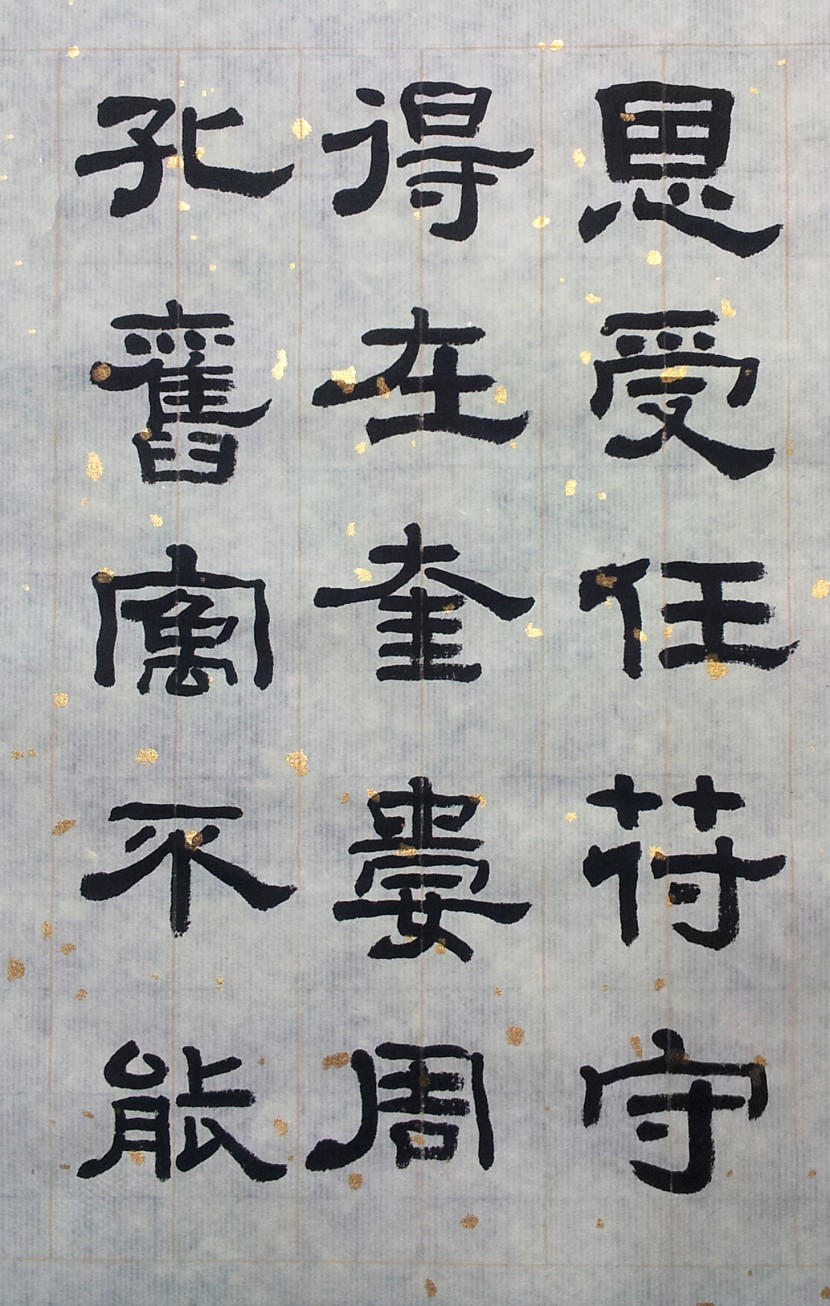 恩受任苻守
得在奎婁周
孔舊寓不能